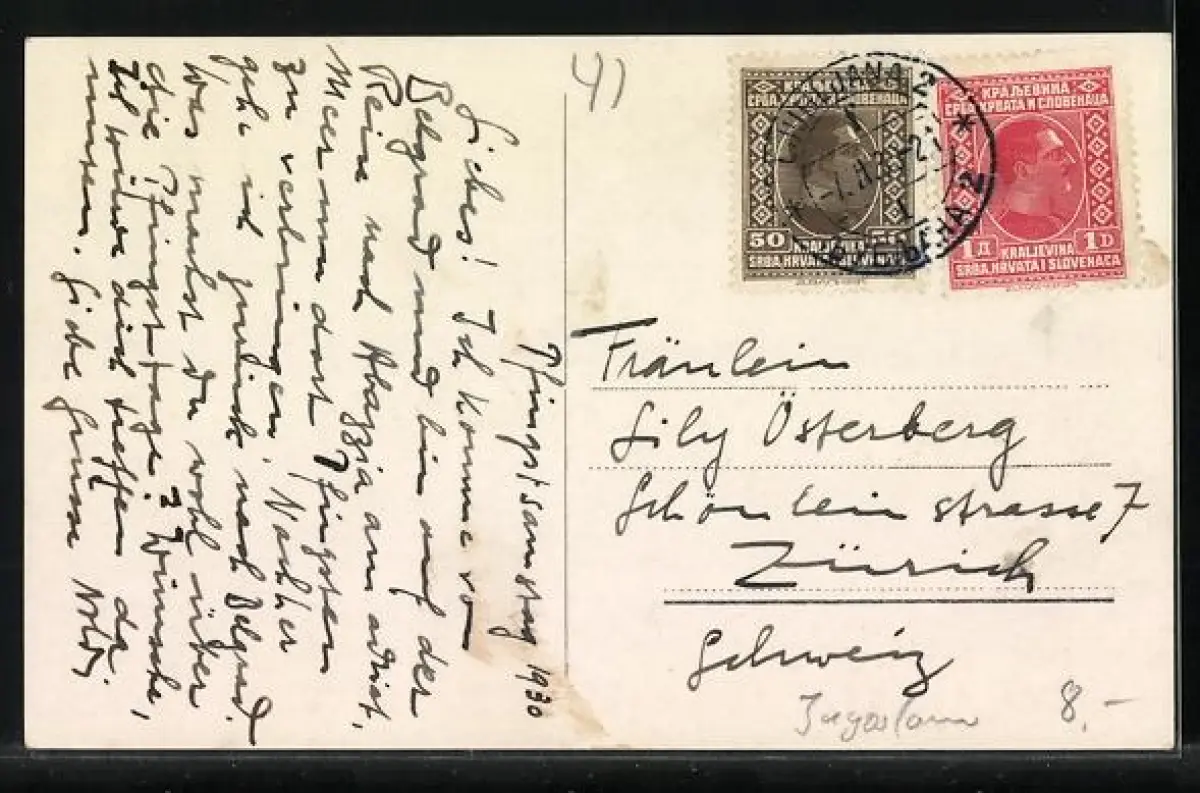 Pfingstsamstag 1930
Liebes! Ich komme von
Belgrad und bin auf der
Reise nach Abazzia am adriat.
Meer um dort Pfingsten
zu verbringen. Nachher
gehe ich zurück nach Belgrad.
Was machst du wohl über
die Pfingsttage? Wünschte,
Ich würde dich treffen da
unten. Liebe Grüsse
41
КРАЉЕВИНА
СРБА, ХРВАТА И СЛОВЕНАЦА
50 KRALJEVINA 50
SRBA, HRVATA I SLOVENACA
КРАЉЕВИНА
СРБА, ХРВАТА И СЛОВЕНАЦА
1Д KRALJEVINA 1D
SRBA, HRVATA I SLOVENACA
LJUBLJANA 2
Fräulein
Lily Österberg
Schönleinstrasse 7
Zürich
Schweiz
Jugoslawi
8.-